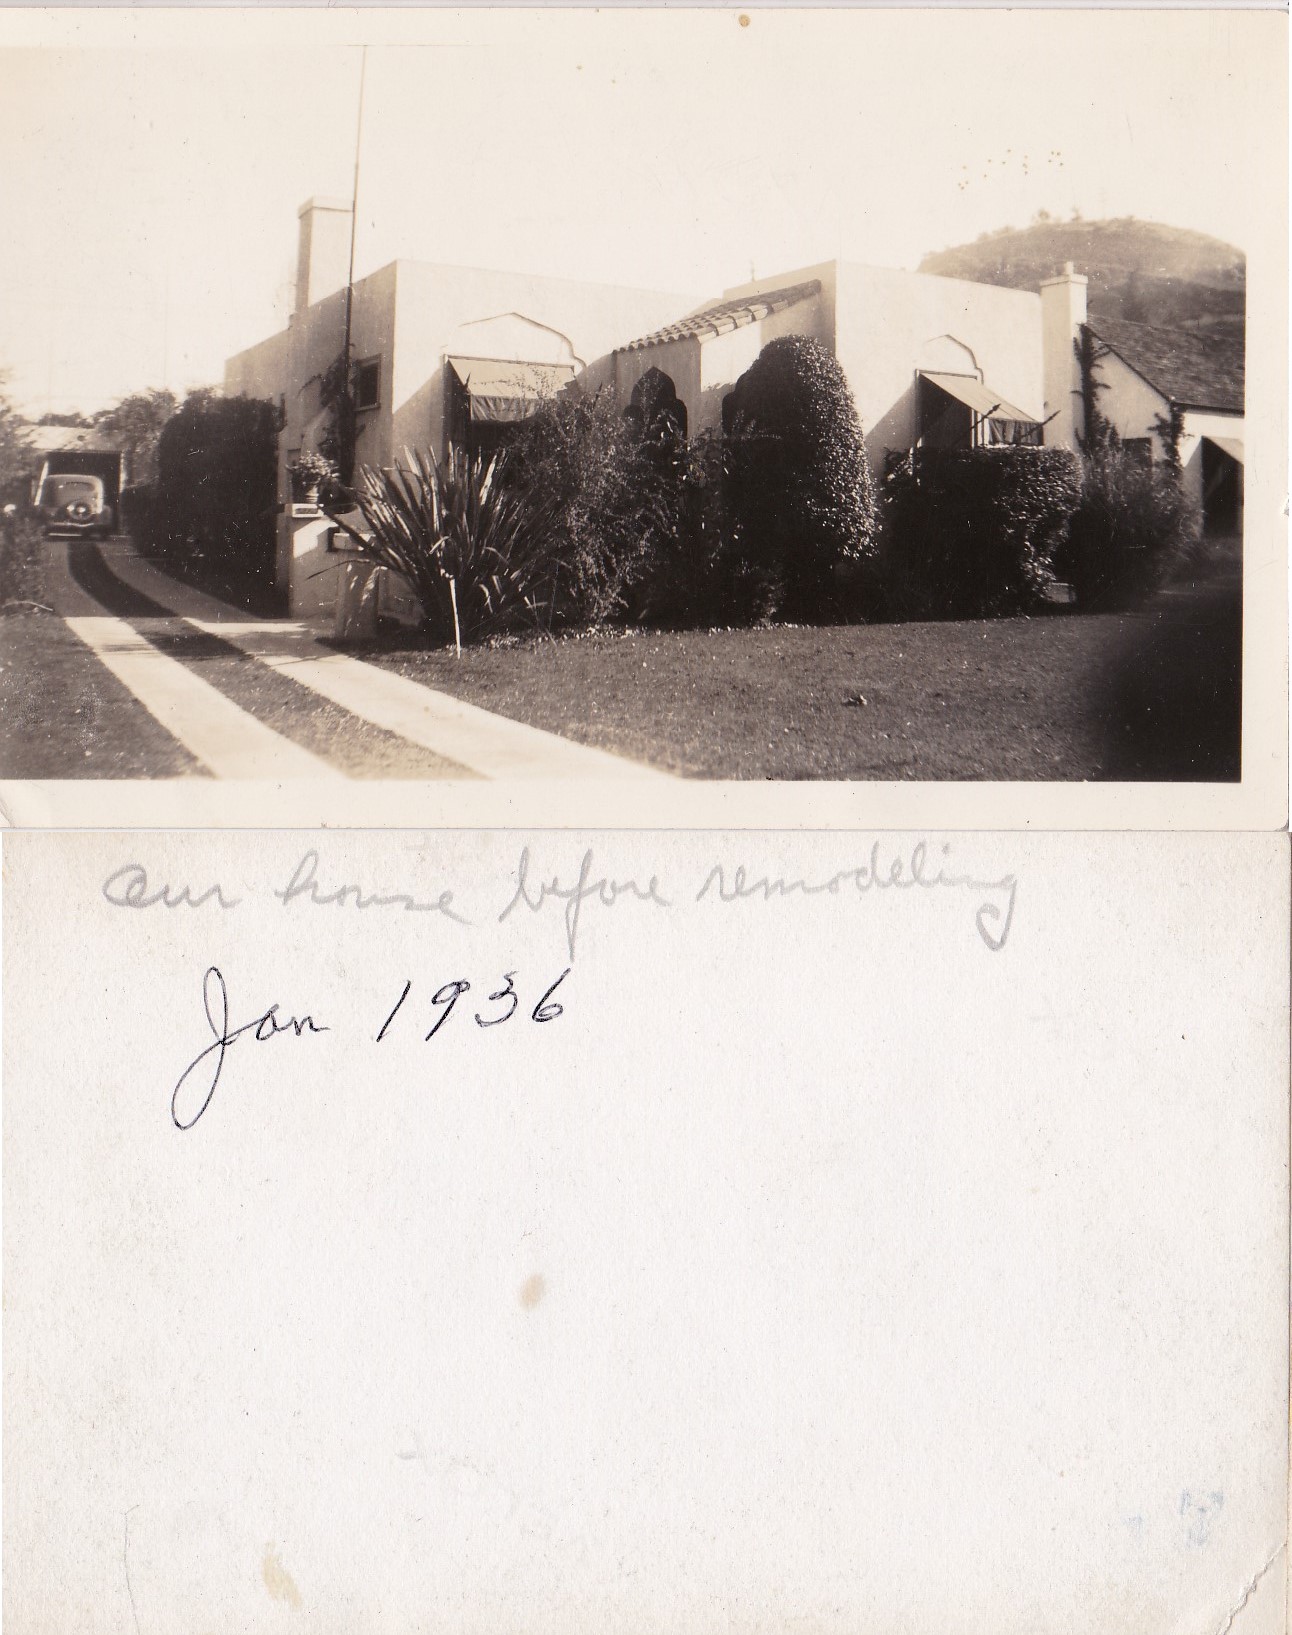 Our house before remodeling
Jan 1936